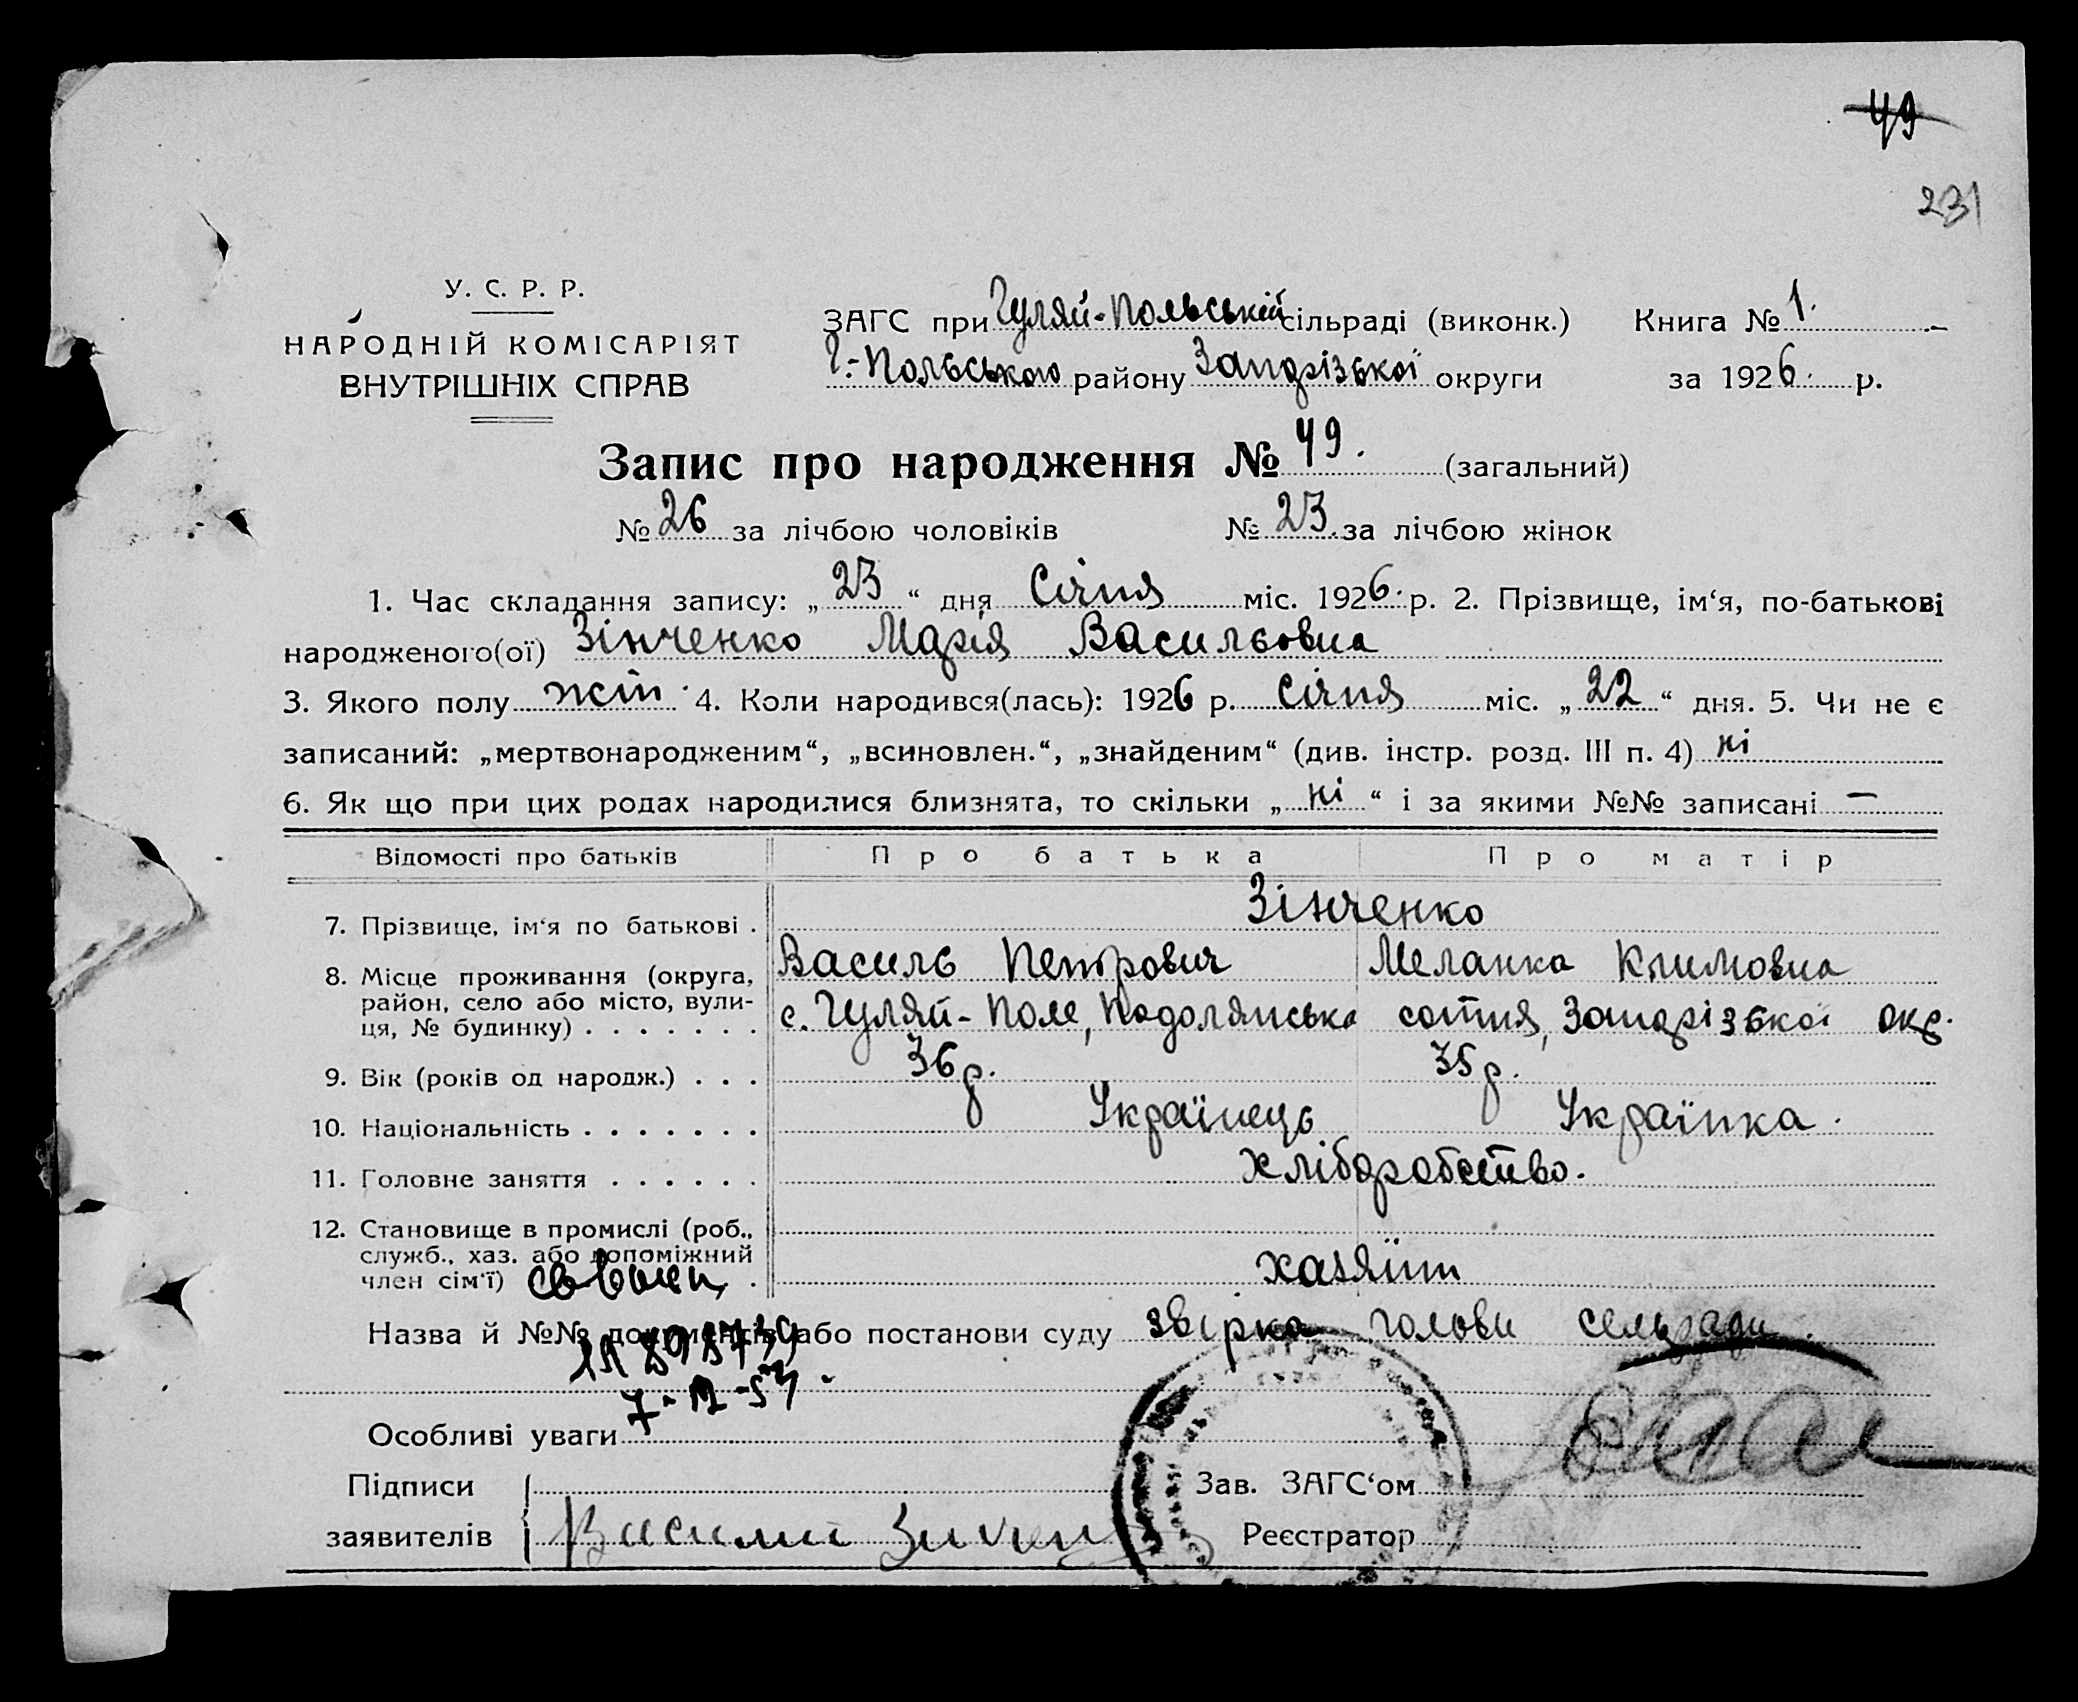 49
231
У. С. Р. Р.
НАРОДНІЙ КОМІСАРІЯТ
ВНУТРІШНІХ СПРАВ
ЗАГС при Гуляй-Польській сільраді (виконк.) Книга № 1.
Г.-Польського району Запорізької округи за 1926 р.
Запис про народження № 49. (загальний)
№ 26 за лічбою чоловіків № 23. за лічбою жінок
1. Час складання запису: „23“ дня Січня міс. 1926 р. 2. Прізвище, ім‘я, по-батькові
народженого(ої) Зінченко Марія Васильовна
3. Якого полу жін. 4. Коли народився(лась): 1926 р. Січня міс. „22“ дня. 5. Чи не є
записаний: „мертвонародженим“, „всиновлен.“, „знайденим“ (див. інстр. розд. III п. 4) ні
6. Як що при цих родах народилися близнята, то скільки „ні“ і за якими №№ записані —
Відомості про батьків Про батька Про матір
7. Прізвище, ім‘я по батькові . Зінченко
Василь Петрович Меланка Климовна
8. Місце проживання (округа,
район, село або місто, вули-
ця, № будинку) . . . . . . . с. Гуляй-Поле, Подолянська сотня, Запорізької окр.
9. Вік (років од народж.) . . . 36 р. 35 р.
10. Національність . . . . . . . Українець Українка.
11. Головне заняття . . . . . . Хліборобство.
12. Становище в промислі (роб.,
служб., хаз. або допоміжний
член сім‘ї) . хазяїин
Назва й №№ документів або постанови суду звірка голови сельради.
Особливі уваги
Підписи Зав. ЗАГС‘ом
заявителів Реєстратор